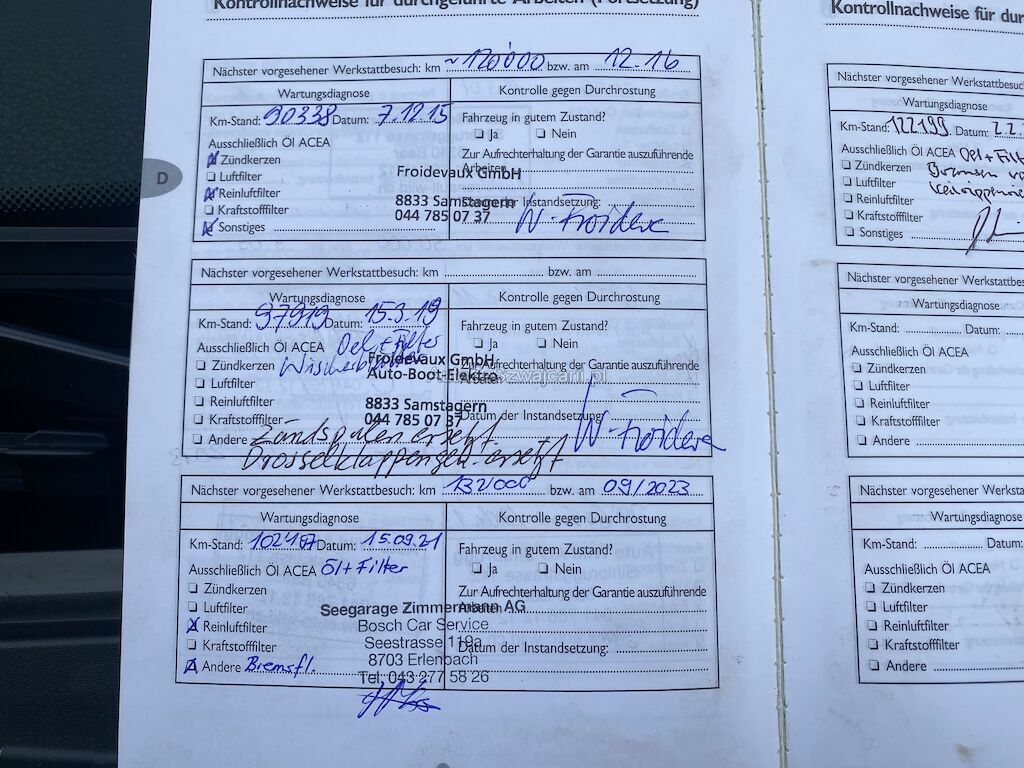 Kontrollnachweise für durchgeführte Arbeiten (Fortsetzung)
Nächster vorgesehener Werkstattbesuch: km ~120'000 bzw. am 12.16
Wartungsdiagnose
Kontrolle gegen Durchrostung
Km-Stand: 90338 Datum: 7.12.15
Ausschließlich Öl ACEA
Zündkerzen
Luftfilter
Reinluftfilter
Kraftstofffilter
Sonstiges
Fahrzeug in gutem Zustand?
Ja Nein
Zur Aufrechterhaltung der Garantie auszuführende
Arbeiten:
Datum der Instandsetzung:
Froidevaux GmbH
8833 Samstagern
044 785 07 37
W. Froidevaux
D
Nächster vorgesehener Werkstattbesuch: km bzw. am
Wartungsdiagnose
Kontrolle gegen Durchrostung
Km-Stand: 97919 Datum: 15.3.19
Ausschließlich Öl ACEA Oel + Filter
Zündkerzen
Luftfilter
Reinluftfilter
Kraftstofffilter
Andere Zündspulen ersetzt.
Drosselklappengeh. ersetzt
Fahrzeug in gutem Zustand?
Ja Nein
Zur Aufrechterhaltung der Garantie auszuführende
Arbeiten:
Datum der Instandsetzung:
Froidevaux GmbH
Auto-Boot-Elektro
8833 Samstagern
044 785 07 37
W. Froidevaux
szwajcarii.pl
Nächster vorgesehener Werkstattbesuch: km 132'000 bzw. am 09/2023
Wartungsdiagnose
Kontrolle gegen Durchrostung
Km-Stand: Datum: 15.09.21
Ausschließlich Öl ACEA Öl + Filter
Zündkerzen
Luftfilter
Reinluftfilter
Kraftstofffilter
Andere Bremsfl.
Fahrzeug in gutem Zustand?
Ja Nein
Zur Aufrechterhaltung der Garantie auszuführende
Arbeiten:
Datum der Instandsetzung:
Seegarage Zimmermann AG
Bosch Car Service
Seestrasse 119a
8703 Erlenbach
Tel. 043 277 58 26
Kontrollnachweise für dur
Nächster vorgesehener Werkstattbesuc
Wartungsdiagnose
Km-Stand: 122199 Datum: 2.2.
Ausschließlich Öl ACEA Oel + Filt
Zündkerzen
Luftfilter
Reinluftfilter
Kraftstofffilter
Sonstiges
Nächster vorgesehener Werkstattbes
Wartungsdiagnose
Km-Stand: Datum:
Ausschließlich Öl ACEA
Zündkerzen
Luftfilter
Reinluftfilter
Kraftstofffilter
Andere
Nächster vorgesehener Werksta
Wartungsdiagnose
Km-Stand: Datum:
Ausschließlich Öl ACEA
Zündkerzen
Luftfilter
Reinluftfilter
Kraftstofffilter
Andere